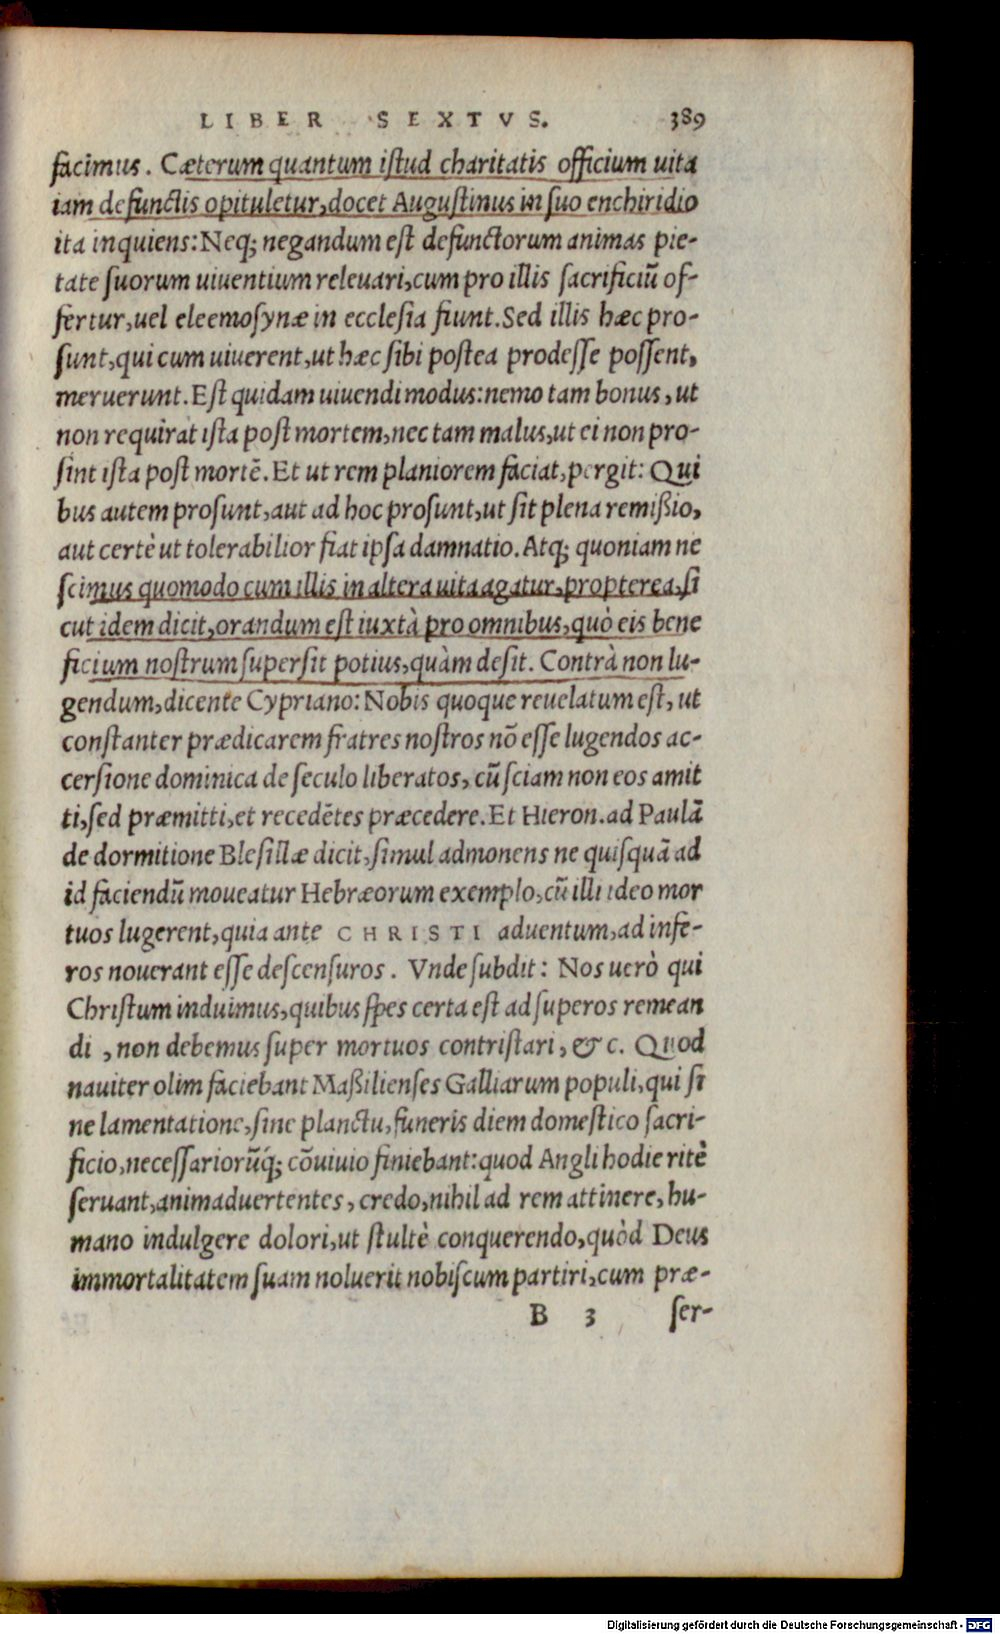 LIBER SEXTVS. 389
facimus. Cæterum quantum iſtud charitatis officium uita
iam defunctis opituletur, docet Auguſtinus in ſuo enchiridio
ita inquiens: Neq; negandum eſt defunctorum animas pie-
tate ſuorum uiuentium releuari, cum pro illis ſacrificiũ of-
fertur, uel eleemoſynæ in eccleſia fiunt. Sed illis hæc pro-
ſunt, qui cum uiuerent, ut hæc ſibi poſtea prodeſſe poſſent,
meruerunt. Eſt quidam uiuendi modus: nemo tam bonus, ut
non requirat iſta poſt mortem, nec tam malus, ut ei non pro-
ſint iſta poſt mortẽ. Et ut rem planiorem faciat, pergit: Qui
bus autem proſunt, aut ad hoc proſunt, ut ſit plena remißio,
aut certè ut tolerabilior fiat ipſa damnatio. Atq; quoniam ne
ſcimus quomodo cum illis in altera uita agatur, propterea, ſi
cut idem dicit, orandum eſt iuxtà pro omnibus, quò eis bene
ficium noſtrum ſuperſit potius, quàm deſit. Contrà non lu-
gendum, dicente Cypriano: Nobis quoque reuelatum eſt, ut
conſtanter prædicarem fratres noſtros nõ eſſe lugendos ac-
cerſione dominica de ſeculo liberatos, cũ ſciam non eos amit
ti, ſed præmitti, et recedẽtes præcedere. Et Hieron. ad Paulã
de dormitione Bleſillæ dicit, ſimul admonens ne quiſquã ad
id faciendũ moueatur Hebræorum exemplo, cũ illi ideo mor
tuos lugerent, quia ante CHRISTI aduentum, ad infe-
ros nouerant eſſe deſcenſuros. Vnde ſubdit: Nos uerò qui
Chriſtum induimus, quibus ſpes certa eſt ad ſuperos remean
di, non debemus ſuper mortuos contriſtari, &c. Quod
nauiter olim faciebant Maßilienſes Galliarum populi, qui ſi
ne lamentatione, ſine planctu, funeris diem domeſtico ſacri-
ficio, neceſſariorũq́; cõuiuio finiebant: quod Angli hodie ritè
ſeruant, animaduertentes, credo, nihil ad rem attinere, hu-
mano indulgere dolori, ut ſtultè conquerendo, quòd Deus
immortalitatem ſuam noluerit nobiſcum partiri, cum præ-
B 3 ſer-
Digitalisierung gefördert durch die Deutsche Forschungsgemeinschaft - DFG